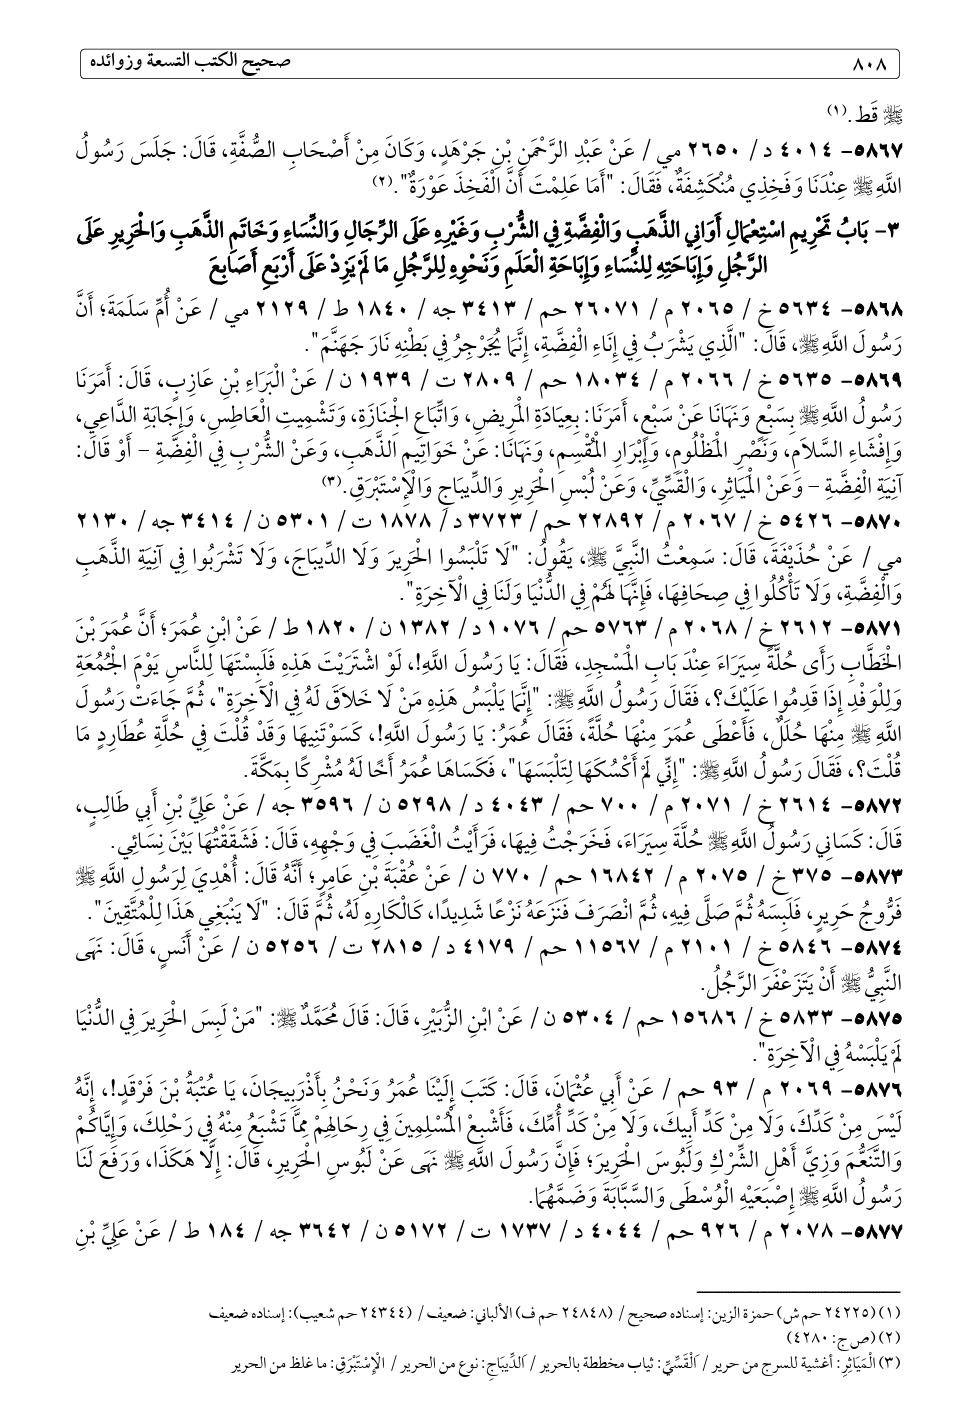 ٨٠٨ صحيح الكتب التسعة وزوائده
ﷺ قَط.(١)
٥٨٦٧- ٤٠١٤ د/ ٢٦٥٠ مي / عَنْ عَبْدِ الرَّحْمَنِ بْنِ جَرْهَدٍ، وَكَانَ مِنْ أَصْحَابِ الصُّفَّةِ، قَالَ: جَلَسَ رَسُولُ
اللَّهِ ﷺ عِنْدَنَا وَفَخِذِي مُنْكَشِفَةٌ، فَقَالَ: "أَمَا عَلِمْتَ أَنَّ الْفَخِذَ عَوْرَةٌ".(٢)
٣- بَابُ تَحْرِيمِ اسْتِعْمَالِ أَوَانِي الذَّهَبِ وَالْفِضَّةِ فِي الشُّرْبِ وَغَيْرِهِ عَلَى الرِّجَالِ وَالنِّسَاءِ وَخَاتَمِ الذَّهَبِ وَالْحَرِيرِ عَلَى
الرَّجُلِ وَإِبَاحَتِهِ لِلنِّسَاءِ وَإِبَاحَةِ الْعَلَمِ وَنَحْوِهِ لِلرَّجُلِ مَا لَمْ يَزِدْ عَلَى أَرْبَعِ أَصَابِعَ
٥٨٦٨- ٥٦٣٤ خ/ ٢٠٦٥ م/ ٢٦٠٧١ حم/ ٣٤١٣ جه/ ١٨٤٠ ط/ ٢١٢٩ مي / عَنْ أُمِّ سَلَمَةَ؛ أَنَّ
رَسُولَ اللَّهِ ﷺ، قَالَ: "الَّذِي يَشْرَبُ فِي إِنَاءِ الْفِضَّةِ، إِنَّمَا يُجَرْجِرُ فِي بَطْنِهِ نَارَ جَهَنَّمَ".
٥٨٦٩- ٥٦٣٥ خ/ ٢٠٦٦ م/ ١٨٠٣٤ حم/ ٢٨٠٩ ت/ ١٩٣٩ ن/ عَنْ الْبَرَاءِ بْنِ عَازِبٍ، قَالَ: أَمَرَنَا
رَسُولُ اللَّهِ ﷺ بِسَبْعٍ وَنَهَانَا عَنْ سَبْعٍ، أَمَرَنَا: بِعِيَادَةِ الْمَرِيضِ، وَاتِّبَاعِ الْجِنَازَةِ، وَتَشْمِيتِ الْعَاطِسِ، وَإِجَابَةِ الدَّاعِي،
وَإِفْشَاءِ السَّلَامِ، وَنَصْرِ الْمَظْلُومِ، وَإِبْرَارِ الْمُقْسِمِ، وَنَهَانَا: عَنْ خَوَاتِيمِ الذَّهَبِ، وَعَنْ الشُّرْبِ فِي الْفِضَّةِ – أَوْ قَالَ:
آنِيَةِ الْفِضَّةِ – وَعَنْ الْمَيَاثِرِ، وَالْقَسِّيِّ، وَعَنْ لُبْسِ الْحَرِيرِ وَالدِّيبَاجِ وَالْإِسْتَبْرَقِ.(٣)
٥٨٧٠- ٥٤٢٦ خ/ ٢٠٦٧ م/ ٢٢٨٩٢ حم/ ٣٧٢٣ د/ ١٨٧٨ ت/ ٥٣٠١ ن/ ٣٤١٤ جه/ ٢١٣٠
مي / عَنْ حُذَيْفَةَ، قَالَ: سَمِعْتُ النَّبِيَّ ﷺ، يَقُولُ: "لَا تَلْبَسُوا الْحَرِيرَ وَلَا الدِّيبَاجَ، وَلَا تَشْرَبُوا فِي آنِيَةِ الذَّهَبِ
وَالْفِضَّةِ، وَلَا تَأْكُلُوا فِي صِحَافِهَا، فَإِنَّهَا لَهُمْ فِي الدُّنْيَا وَلَنَا فِي الْآخِرَةِ".
٥٨٧١- ٢٦١٢ خ/ ٢٠٦٨ م/ ٥٧٦٣ حم/ ١٠٧٦ د/ ١٣٨٢ ن/ ١٨٢٠ ط/ عَنْ ابْنِ عُمَرَ؛ أَنَّ عُمَرَ بْنَ
الْخَطَّابِ رَأَى حُلَّةً سِيَرَاءَ عِنْدَ بَابِ الْمَسْجِدِ، فَقَالَ: يَا رَسُولَ اللَّهِ!، لَوْ اشْتَرَيْتَ هَذِهِ فَلَبِسْتَهَا لِلنَّاسِ يَوْمَ الْجُمُعَةِ
وَلِلْوَفْدِ إِذَا قَدِمُوا عَلَيْكَ؟، فَقَالَ رَسُولُ اللَّهِ ﷺ: "إِنَّمَا يَلْبَسُ هَذِهِ مَنْ لَا خَلَاقَ لَهُ فِي الْآخِرَةِ"، ثُمَّ جَاءَتْ رَسُولَ
اللَّهِ ﷺ مِنْهَا حُلَلٌ، فَأَعْطَى عُمَرَ مِنْهَا حُلَّةً، فَقَالَ عُمَرُ: يَا رَسُولَ اللَّهِ!، كَسَوْتَنِيهَا وَقَدْ قُلْتَ فِي حُلَّةِ عُطَارِدٍ مَا
قُلْتَ؟، فَقَالَ رَسُولُ اللَّهِ ﷺ: "إِنِّي لَمْ أَكْسُكَهَا لِتَلْبَسَهَا"، فَكَسَاهَا عُمَرُ أَخًا لَهُ مُشْرِكًا بِمَكَّةَ.
٥٨٧٢- ٢٦١٤ خ/ ٢٠٧١ م/ ٧٠٠ حم/ ٤٠٤٣ د/ ٥٢٩٨ ن/ ٣٥٩٦ جه/ عَنْ عَلِيِّ بْنِ أَبِي طَالِبٍ،
قَالَ: كَسَانِي رَسُولُ اللَّهِ ﷺ حُلَّةَ سِيَرَاءَ، فَخَرَجْتُ فِيهَا، فَرَأَيْتُ الْغَضَبَ فِي وَجْهِهِ، قَالَ: فَشَقَقْتُهَا بَيْنَ نِسَائِي.
٥٨٧٣- ٣٧٥ خ/ ٢٠٧٥ م/ ١٦٨٤٢ حم/ ٧٧٠ ن/ عَنْ عُقْبَةَ بْنِ عَامِرٍ؛ أَنَّهُ قَالَ: أُهْدِيَ لِرَسُولِ اللَّهِ ﷺ
فَرُّوجُ حَرِيرٍ، فَلَبِسَهُ ثُمَّ صَلَّى فِيهِ، ثُمَّ انْصَرَفَ فَنَزَعَهُ نَزْعًا شَدِيدًا، كَالْكَارِهِ لَهُ، ثُمَّ قَالَ: "لَا يَنْبَغِي هَذَا لِلْمُتَّقِينَ".
٥٨٧٤- ٥٨٤٦ خ/ ٢١٠١ م/ ١١٥٦٧ حم/ ٤١٧٩ د/ ٢٨١٥ ت/ ٥٢٥٦ ن/ عَنْ أَنَسٍ، قَالَ: نَهَى
النَّبِيُّ ﷺ أَنْ يَتَزَعْفَرَ الرَّجُلُ.
٥٨٧٥- ٥٨٣٣ خ/ ١٥٦٨٦ حم/ ٥٣٠٤ ن/ عَنْ ابْنِ الزُّبَيْرِ، قَالَ: قَالَ مُحَمَّدٌ ﷺ: "مَنْ لَبِسَ الْحَرِيرَ فِي الدُّنْيَا
لَمْ يَلْبَسْهُ فِي الْآخِرَةِ".
٥٨٧٦- ٢٠٦٩ م/ ٩٣ حم/ عَنْ أَبِي عُثْمَانَ، قَالَ: كَتَبَ إِلَيْنَا عُمَرُ وَنَحْنُ بِأَذْرَبِيجَانَ، يَا عُتْبَةُ بْنَ فَرْقَدٍ!، إِنَّهُ
لَيْسَ مِنْ كَدِّكَ، وَلَا مِنْ كَدِّ أَبِيكَ، وَلَا مِنْ كَدِّ أُمِّكَ، فَأَشْبِعْ الْمُسْلِمِينَ فِي رِحَالِهِمْ مِمَّا تَشْبَعُ مِنْهُ فِي رَحْلِكَ، وَإِيَّاكُمْ
وَالتَّنَعُّمَ وَزِيَّ أَهْلِ الشِّرْكِ وَلَبُوسَ الْحَرِيرَ؛ فَإِنَّ رَسُولَ اللَّهِ ﷺ نَهَى عَنْ لَبُوسِ الْحَرِيرِ، قَالَ: إِلَّا هَكَذَا، وَرَفَعَ لَنَا
رَسُولُ اللَّهِ ﷺ إِصْبَعَيْهِ الْوُسْطَى وَالسَّبَّابَةَ وَضَمَّهُمَا.
٥٨٧٧- ٢٠٧٨ م/ ٩٢٦ حم/ ٤٠٤٤ د/ ١٧٣٧ ت/ ٥١٧٢ ن/ ٣٦٤٢ جه/ ١٨٤ ط/ عَنْ عَلِيِّ بْنِ
(١) (٢٤٢٢٥ حم ش) حمزة الزين: إسناده صحيح/ (٢٤٨٤٨ حم ف) الألباني: ضعيف/ (٢٤٣٤٤ حم شعيب): إسناده ضعيف
(٢) (ص ج: ٤٢٨٠)
(٣) الْمَيَاثِرِ: أغشية للسرج من حرير/ اَلْقَسِّيِّ: ثياب مخططة بالحرير/ اَلدِّيبَاجِ: نوع من الحرير/ الْإِسْتَبْرَقِ: ما غلظ من الحرير